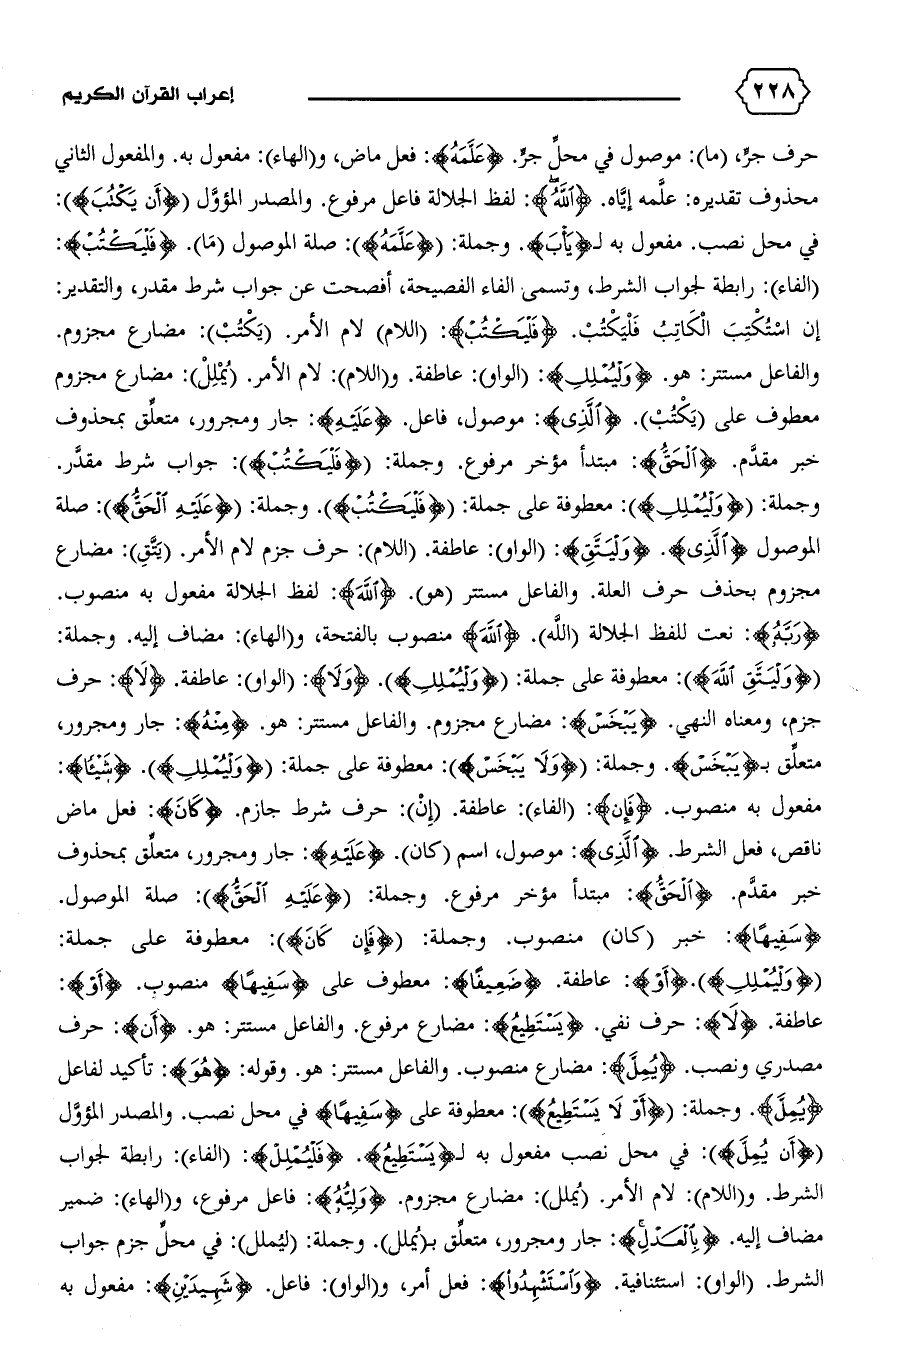 ٢٢٨ إعراب القرآن الكريم
حرف جرّ، (ما): موصول في محلِّ جرٍّ. ﴿عَلَّمَهُ﴾: فعل ماض، و(الهاء): مفعول به. والمفعول الثاني
محذوف تقديره: علَّمه إيَّاه. ﴿ٱللَّهُۚ﴾: لفظ الجلالة فاعل مرفوع. والمصدر المؤوَّل (﴿أَن يَكْتُبَ﴾):
في محل نصب. مفعول به لـ﴿يَأْبَ﴾. وجملة: (﴿عَلَّمَهُ﴾): صلة الموصول (مَا). ﴿فَلْيَكْتُبْ﴾:
(الفاء): رابطة لجواب الشرط، وتسمى الفاء الفصيحة، أفصحت عن جواب شرط مقدر، والتقدير:
إن اسْتُكْتِبَ الْكَاتِبُ فَلْيَكْتُبْ. ﴿فَلْيَكْتُبْ﴾: (اللام) لام الأمر. (يَكْتُبْ): مضارع مجزوم.
والفاعل مستتر: هو. ﴿وَلْيُمْلِلِ﴾: (الواو): عاطفة. و(اللام): لام الأمر. (يُمْلِلْ): مضارع مجزوم
معطوف على (يَكْتُبْ). ﴿ٱلَّذِى﴾: موصول، فاعل. ﴿عَلَيْهِ﴾: جار ومجرور، متعلِّق بمحذوف
خبر مقدَّم. ﴿ٱلْحَقُّ﴾: مبتدأ مؤخر مرفوع. وجملة: (﴿فَلْيَكْتُبْ﴾): جواب شرط مقدَّر.
وجملة: (﴿وَلْيُمْلِلِ﴾): معطوفة على جملة: (﴿فَلْيَكْتُبْ﴾). وجملة: (﴿عَلَيْهِ ٱلْحَقُّ﴾): صلة
الموصول ﴿ٱلَّذِى﴾. ﴿وَلْيَتَّقِ﴾: (الواو): عاطفة. (اللام): حرف جزم لام الأمر. (يَتَّقِ): مضارع
مجزوم بحذف حرف العلة. والفاعل مستتر (هو). ﴿ٱللَّهَ﴾: لفظ الجلالة مفعول به منصوب.
﴿رَبَّهُۥ﴾: نعت للفظ الجلالة (اللَّه). ﴿ٱللَّهَ﴾ منصوب بالفتحة، و(الهاء): مضاف إليه. وجملة:
(﴿وَلْيَتَّقِ ٱللَّهَ﴾): معطوفة على جملة: (﴿وَلْيُمْلِلِ﴾). ﴿وَلَا﴾: (الواو): عاطفة. ﴿لَا﴾: حرف
جزم، ومعناه النهي. ﴿يَبْخَسْ﴾: مضارع مجزوم. والفاعل مستتر: هو. ﴿مِنْهُ﴾: جار ومجرور،
متعلِّق بـ﴿يَبْخَسْ﴾. وجملة: (﴿وَلَا يَبْخَسْ﴾): معطوفة على جملة: (﴿وَلْيُمْلِلِ﴾). ﴿شَيْئًا﴾:
مفعول به منصوب. ﴿فَإِن﴾: (الفاء): عاطفة. (إِنْ): حرف شرط جازم. ﴿كَانَ﴾: فعل ماض
ناقص، فعل الشرط. ﴿ٱلَّذِى﴾: موصول، اسم (كان). ﴿عَلَيْهِ﴾: جار ومجرور، متعلِّق بمحذوف
خبر مقدَّم. ﴿ٱلْحَقُّ﴾: مبتدأ مؤخر مرفوع. وجملة: (﴿عَلَيْهِ ٱلْحَقُّ﴾): صلة الموصول.
﴿سَفِيهًا﴾: خبر (كان) منصوب. وجملة: (﴿فَإِن كَانَ﴾): معطوفة على جملة:
(﴿وَلْيُمْلِلِ﴾).﴿أَوْ﴾: عاطفة. ﴿ضَعِيفًا﴾: معطوف على ﴿سَفِيهًا﴾ منصوب. ﴿أَوْ﴾:
عاطفة. ﴿لَا﴾: حرف نفي. ﴿يَسْتَطِيعُ﴾: مضارع مرفوع. والفاعل مستتر: هو. ﴿أَن﴾: حرف
مصدري ونصب. ﴿يُمِلَّ﴾: مضارع منصوب. والفاعل مستتر: هو. وقوله: ﴿هُوَ﴾: تأكيد لفاعل
﴿يُمِلَّ﴾. وجملة: (﴿أَوْ لَا يَسْتَطِيعُ﴾): معطوفة على ﴿سَفِيهًا﴾ في محل نصب. والمصدر المؤوَّل
(﴿أَن يُمِلَّ﴾): في محل نصب مفعول به لـ﴿يَسْتَطِيعُ﴾. ﴿فَلْيُمْلِلْ﴾: (الفاء): رابطة لجواب
الشرط. و(اللام): لام الأمر. (يُملل): مضارع مجزوم. ﴿وَلِيُّهُۥ﴾: فاعل مرفوع، و(الهاء): ضمير
مضاف إليه. ﴿بِٱلْعَدْلِۚ﴾: جار ومجرور، متعلِّق بـ(يُملل). وجملة: (ليُملل): في محلِّ جزم جواب
الشرط. (الواو): استئنافية. ﴿وَٱسْتَشْهِدُوا۟﴾: فعل أمر، و(الواو): فاعل. ﴿شَهِيدَيْنِ﴾: مفعول به